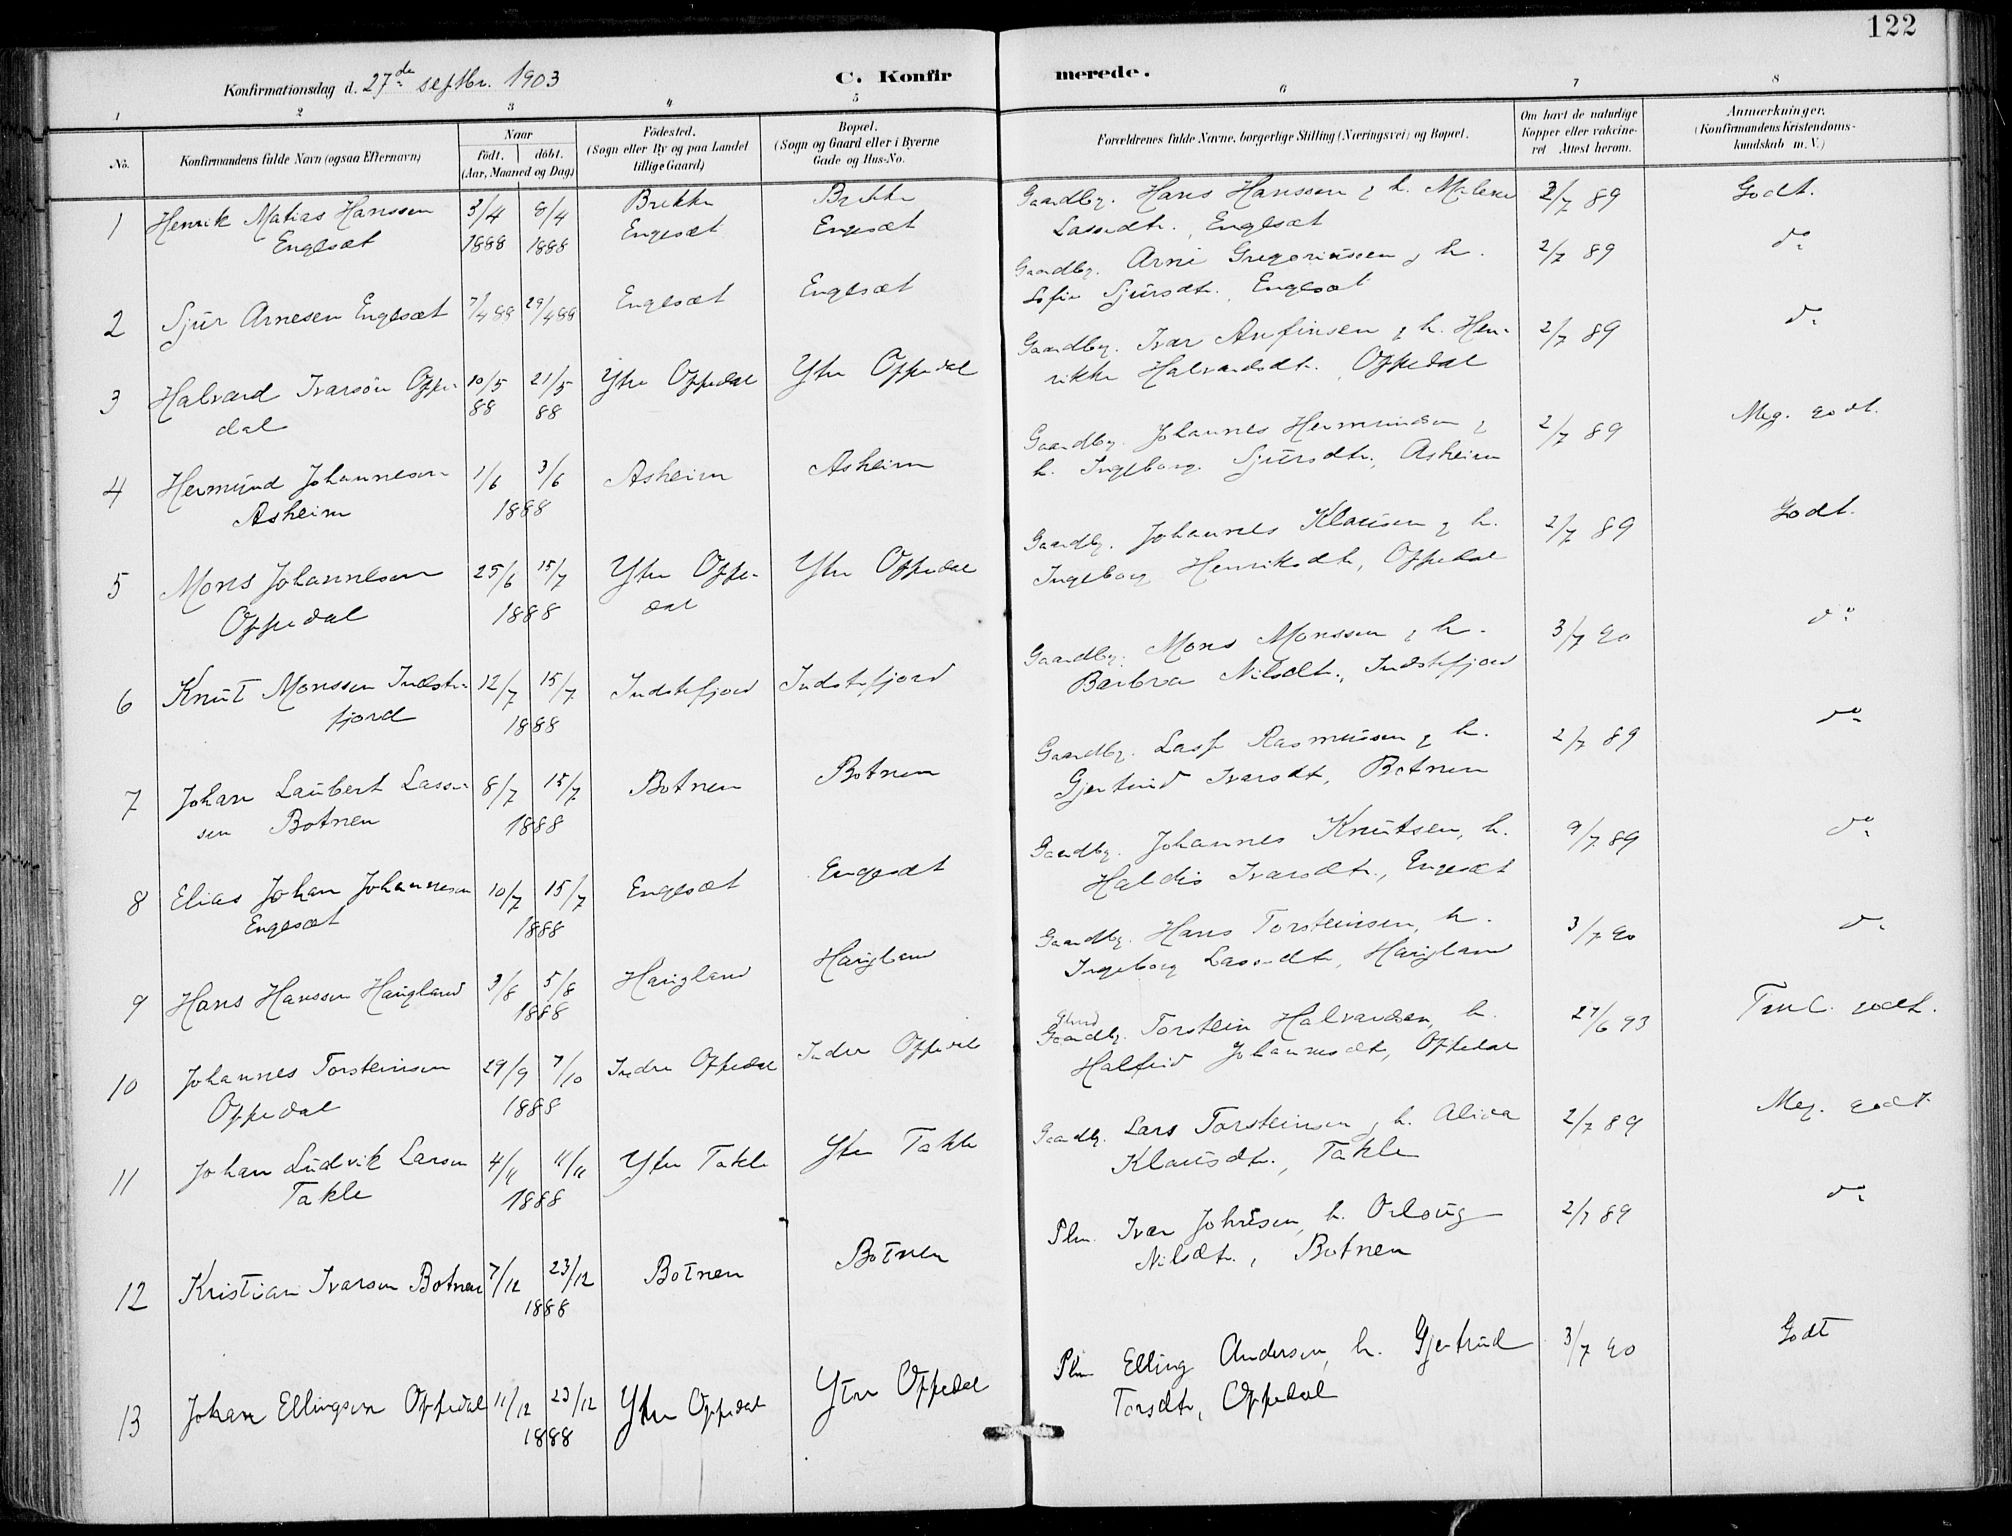 122
Konfirmationsdag d. 27de septbr. 1903
C. Konfirmerede.
1 2 3 4 5 6 7 8
No.
Konfirmandens fulde Navn (ogsaa Efternavn)
Naar
født. døbt.
(Aar, Maaned og Dag)
Fødested.
(Sogn eller By og paa Landet
tillige Gaard)
Bopæl.
(Sogn og Gaard eller i Byerne
Gade og Hus-No.
Forældrenes fulde Navne, borgerlige Stilling (Næringsvei) og Bopæl.
Om havt de naturlige
Kopper eller vakcine-
ret Attest herom.
Anmærkninger.
(Konfirmandens Kristendoms-
kundskab m. V.)
1 Henrik Matias Hanssen 3/4 8/4 Brekke Brekke Gaardbr. Hans Hanssen & h. Malene 2/7 89 Godt.
Engesæt 1888 1888 Engesæt Engesæt Lassedtr., Engesæt
2 Sjur Arnesen Engesæt 7/4 88 29/4 88 Engesæt Engesæt Gaardbr. Arne Gregoriussen & h. 2/7 89 do
Sofie Sjursdtr. Engesæt
3 Halvard Ivarsøn Oppe- 10/5 21/5 Ytre Oppedal Ytre Oppedal Gaardbr. Ivar Anfinsen & h. Hen- 2/7 89 do
dal 88 88 rikke Halvardsdtr. Oppedal
4 Hermund Johannesen 1/6 3/6 Asheim Asheim Gaardbr. Johannes Hermundsen & 2/7 89 Meg. godt.
Asheim 1888 h. Ingeborg Sjursdtr., Asheim
5 Mons Johannesen 25/6 15/7 Ytre Oppe- Ytre Oppedal Gaardbr. Johannes Klausen & h. 2/7 89 Godt.
Oppedal 1888 dal Ingeborg Henriksdtr, Oppedal
6 Knut Monssen Indste- 12/7 15/7 Indstefjord Indstefjord Gaardbr. Mons Monssen & h. 3/7 90 do
fjord 1888 Barbra Nilsdtr., Indstefjord
7 Johan Laubert Lasse- 8/7 15/7 Botnen Botnen Gaardbr. Lasse Rasmussen & h. 2/7 89 do
sen Botnen 1888 Gjertrud Ivarsdtr, Botnen
8 Elias Johan Johannesen 10/7 15/7 Engesæt Engesæt Gaardbr. Johannes Knutsen, h. 9/7 89 do
Engesæt 1888 Haldis Ivarsdtr., Engesæt
9 Hans Hanssen Haugland 3/8 5/8 Haugland Haugland Gaardbr. Hans Torsteinsen, h. 3/7 90 do
1888 Ingeborg Lassedtr, Haugland
10 Johannes Torsteinsen 29/9 7/10 Indre Oppedal Indre Oppedal Gaardbr. Torstein Halvardsen, h. 27/6 93 Tml. godt.
Oppedal 1888 Halfrid Johannesdtr, Oppedal
11 Johan Ludvik Larsen 4/11 11/11 Ytre Takle Ytre Takle Gaardbr. Lars Torsteinsen, h. Alida 2/7 89 Meg. godt.
Takle 1888 Klausdtr., Takle
12 Kristian Ivarsen Botnen 7/12 23/12 Botnen Botnen Plm. Ivar Johnsen, h. Orloug 2/7 89 do
1888 Nilsdtr., Botnen
13 Johan Ellingsen Oppedal 11/12 23/12 Ytre Oppedal Ytre Oppedal Plm Elling Andersen, h. Gjertrud 3/7 90 Godt
1888 Torsdtr, Oppedal